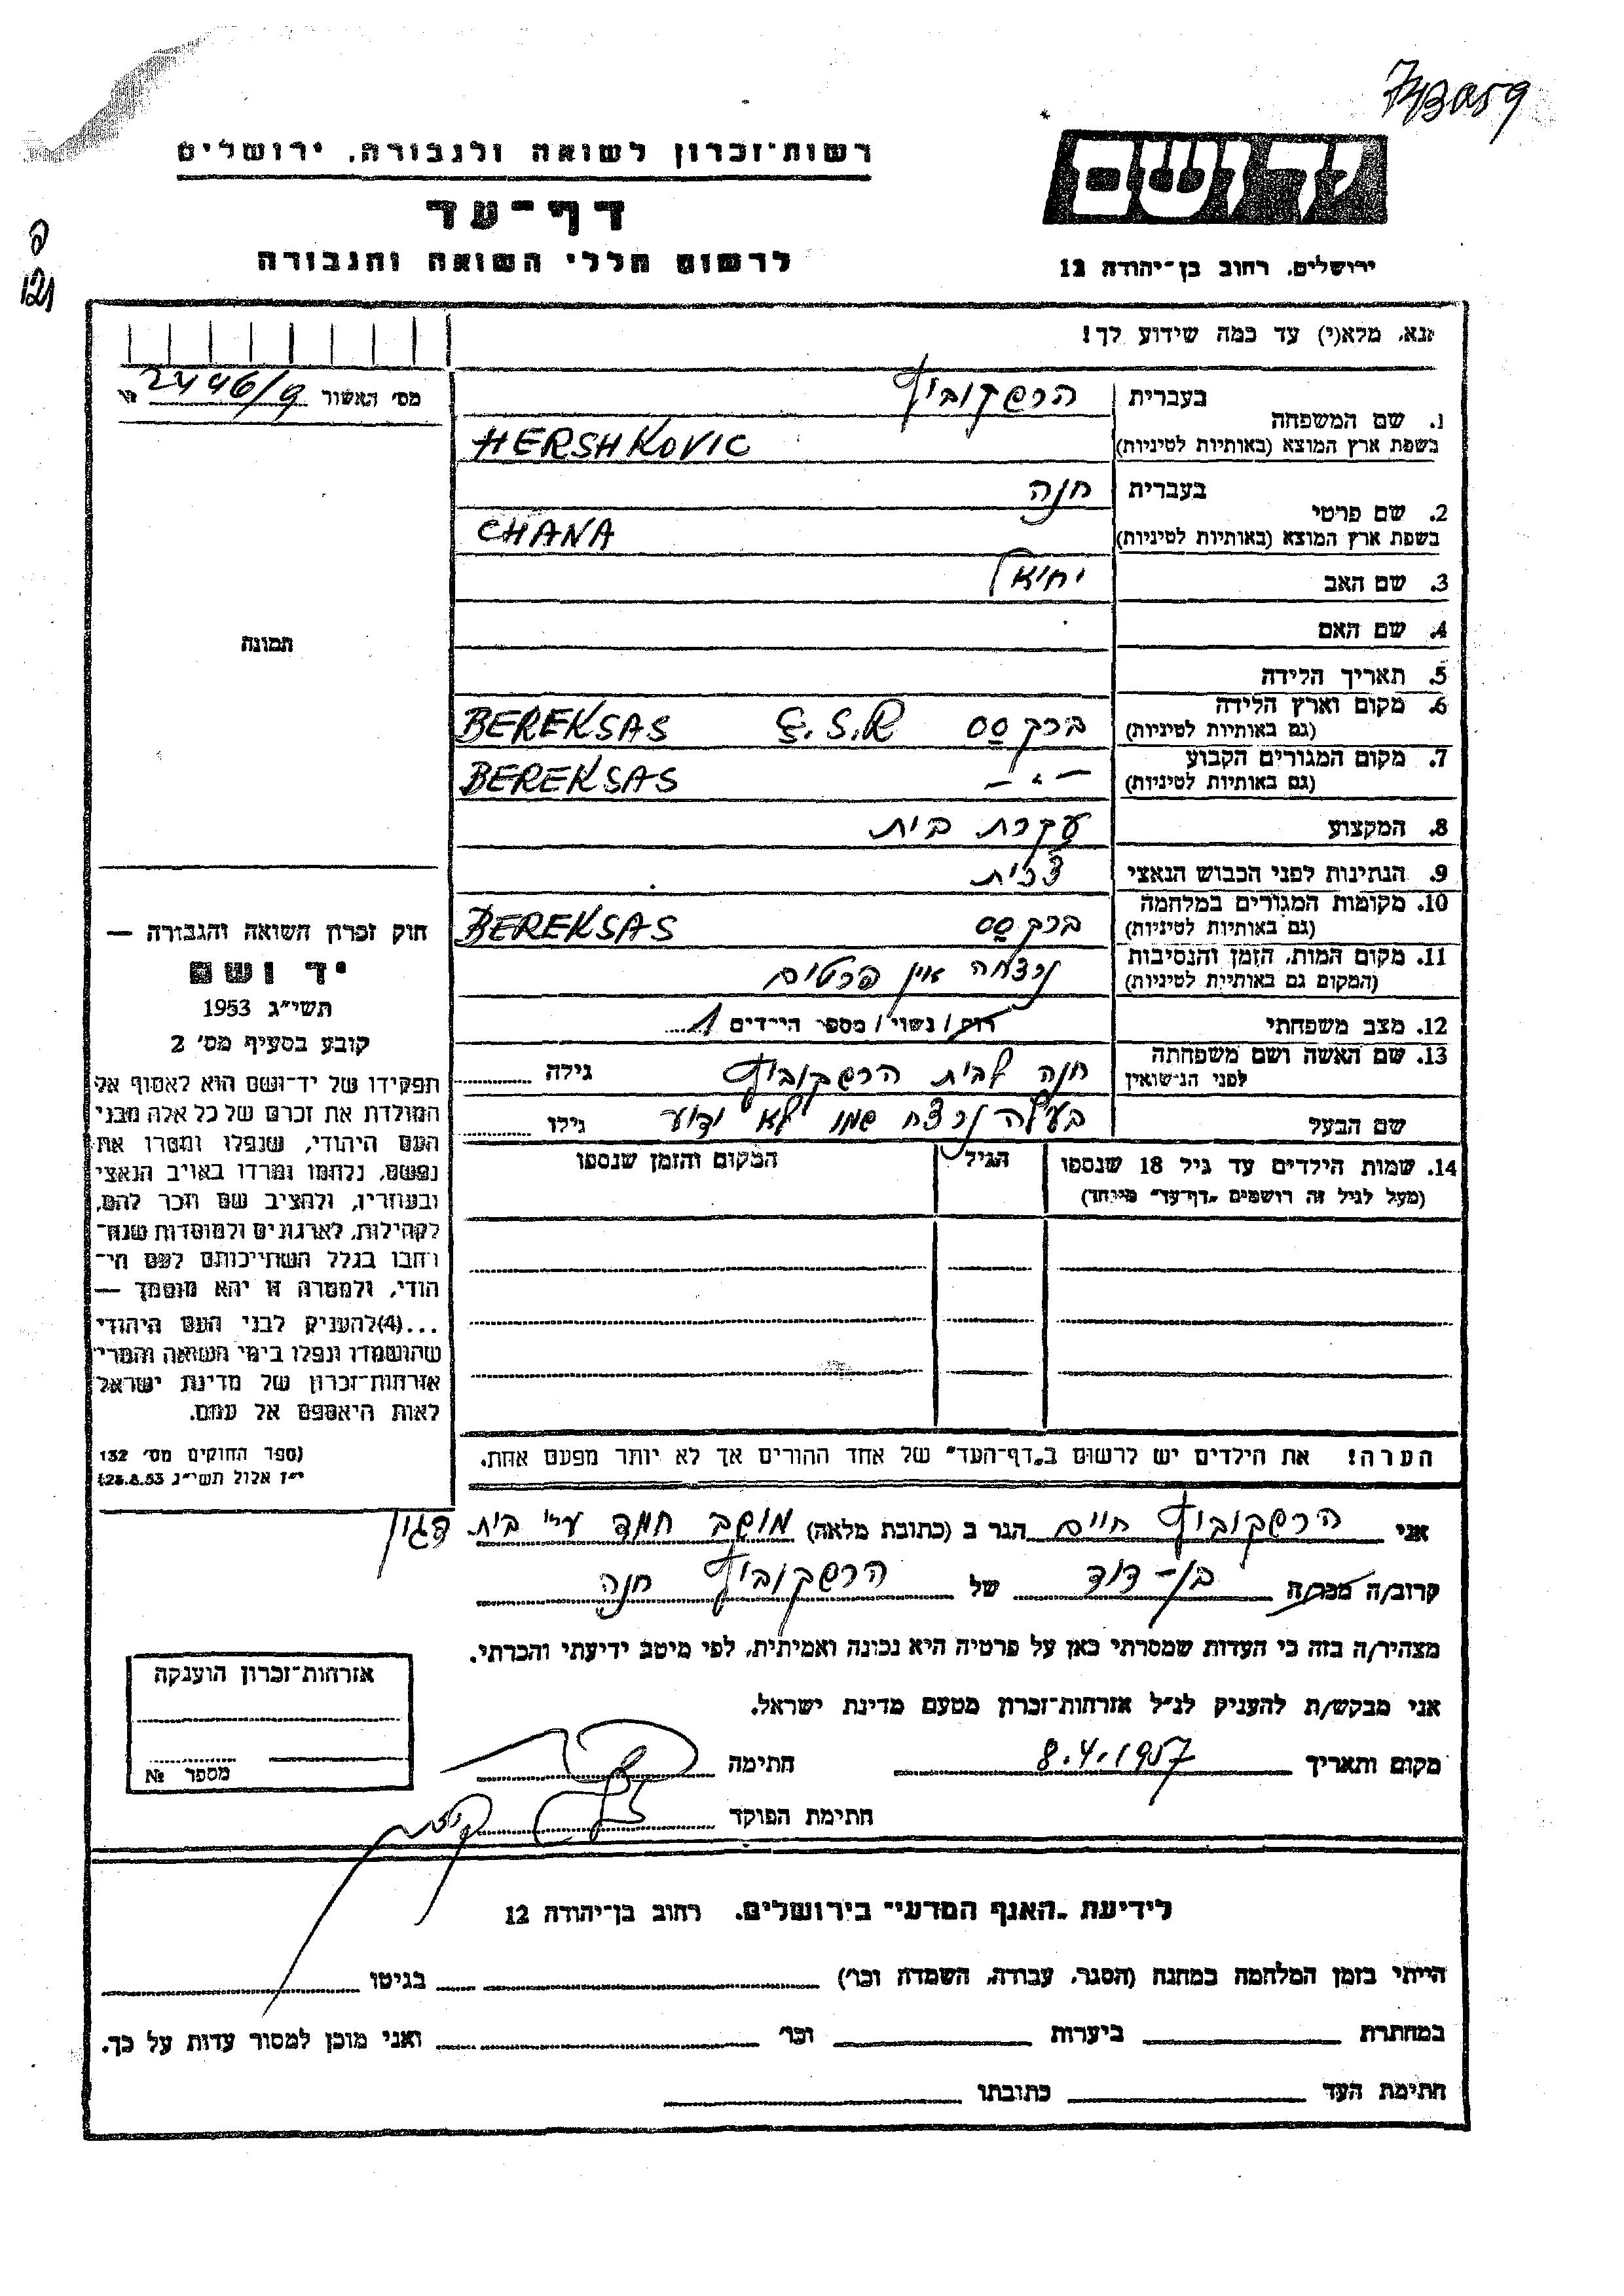 743059
רשות-זכרון לשואה ולגבורה. ירושלים
יד ושם
דף-עד
לרשום חללי השואה והגבורה
ירושלים, רחוב בן-יהודה 12
נא, מלא(י) עד כמה שידוע לך!
מס׳ האשור 2446/9 №
1. שם המשפחה
בעברית הרשקוביץ
בשפת ארץ המוצא (באותיות לטיניות) HERSHKOVIC
2. שם פרטי
בעברית חנה
בשפת ארץ המוצא (באותיות לטיניות) CHANA
3. שם האב יחיאל
4. שם האם
5. תאריך הלידה
6. מקום וארץ הלידה ברקסס Č.S.R BEREKSAS
(גם באותיות לטיניות)
7. מקום המגורים הקבוע -"- BEREKSAS
(גם באותיות לטיניות)
8. המקצוע עקרת בית
9. הנתינות לפני הכבוש הנאצי צ׳כית
10. מקומות המגורים במלחמה ברקסס BEREKSAS
(גם באותיות לטיניות)
11. מקום המות, הזמן והנסיבות נרצחה אין פרטים
(המקום גם באותיות לטיניות)
12. מצב משפחתי רווק / נשוי / מספר הילדים 1
13. שם האשה ושם משפחתה חנה לבית הרשקוביץ גילה
לפני הנישואין
שם הבעל בעלה נרצח שמו לא ידוע גילו
14. שמות הילדים עד גיל 18 שנספו הגיל המקום והזמן שנספו
(מעל לגיל זה רושמים "דף-עד" מיוחד)
הערה! את הילדים יש לרשום ב"דף-העד" של אחד ההורים אך לא יותר מפעם אחת.
תמונה
חוק זכרון השואה והגבורה —
יד ושם
תשי"ג 1953
קובע בסעיף מס׳ 2
תפקידו של יד-ושם הוא לאסוף אל
המולדת את זכרם של כל אלה מבני
העם היהודי, שנפלו ומסרו את
נפשם, נלחמו ומרדו באויב הנאצי
ובעוזריו, ולהציב שם וזכר להם,
לקהילות, לארגונים ולמוסדות שנח-
רבו בגלל השתייכותם לעם הי-
הודי, ולמטרה זו יהא מוסמך —
...(4)להעניק לבני העם היהודי
שהושמדו ונפלו בימי השואה והמרי
אזרחות-זכרון של מדינת ישראל
לאות היאספם אל עמם.
(ספר החוקים מס׳ 132
י"ז אלול תשי"ג 28.8.53)
אני הרשקוביץ חיים הגר ב (כתובת מלאה) מושב חמד ע"י בית דגון
קרוב/ה מכר/ה בן-דוד של הרשקוביץ חנה
מצהיר/ה בזה כי העדות שמסרתי כאן על פרטיה היא נכונה ואמיתית, לפי מיטב ידיעתי והכרתי.
אני מבקש/ת להעניק לנ"ל אזרחות-זכרון מטעם מדינת ישראל.
מקום ותאריך 8.4.1957 חתימה
חתימת הפוקד
אזרחות-זכרון הוענקה
מספר №
לידיעת "האגף המדעי" בירושלים, רחוב בן-יהודה 12
הייתי בזמן המלחמה במחנה (הסגר, עבודה, השמדה וכו׳) בגיטו
במחתרת ביערות וכו׳ ואני מוכן למסור עדות על כך.
חתימת העד כתובתו